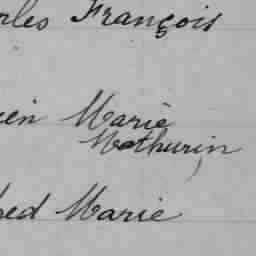 rles François
ien Marie
Mathurin
red Marie